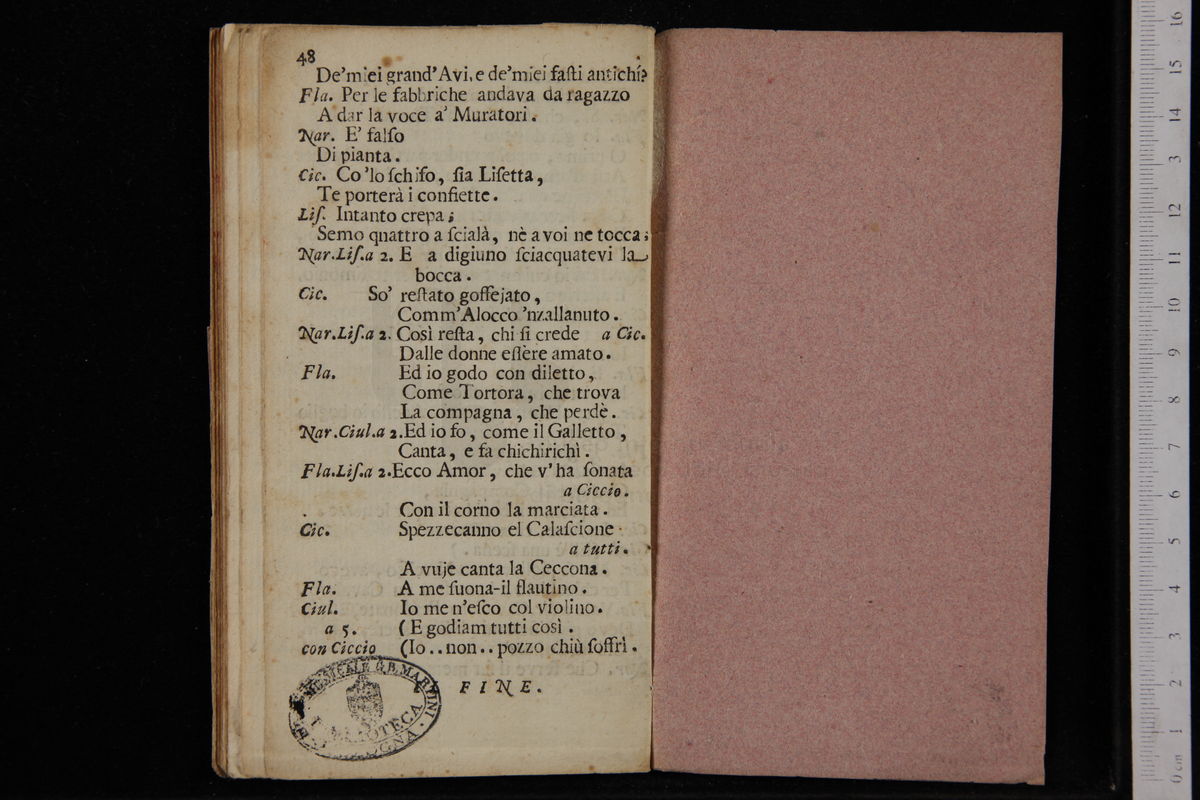 48
De'miei grand'Avi, e de'miei faſti antichi?
Fla. Per le fabbriche andava da ragazzo
A dar la voce a' Muratori.
Nar. E' falſo
Di pianta.
Cic. Co 'lo ſchifo, ſia Liſetta,
Te porterà i confiette.
Liſ. Intanto crepa;
Semo quattro a ſcialà, nè a voi ne tocca;
Nar.Liſ.a 2. E a digiuno ſciacquatevi la
bocca.
Cic. So' reſtato goffejato,
Comm'Alocco 'nzallanuto.
Nar.Liſ.a 2. Così reſta, chi ſi crede a Cic.
Dalle donne eſſère amato.
Fla. Ed io godo con diletto,
Come Tortora, che trova
La compagna, che perdè.
Nar.Ciul.a 2.Ed io fo, come il Galletto,
Canta, e fa chichirichì.
Fla.Liſ.a 2.Ecco Amor, che v'ha ſonata
a Ciccio.
Con il corno la marciata.
Cic. Spezzecanno el Calaſcione
a tutti.
A vuje canta la Ceccona.
Fla. A me ſuona-il flautino.
Ciul. Io me n'eſco col violino.
a 5. (E godiam tutti così.
con Ciccio (Io..non..pozzo chiù ſoffrì.
FINE.
MUSICALE G.B. MARTINI
16
15
14
13
12
11
10
9
8
7
6
5
4
3
2
1
0 cm